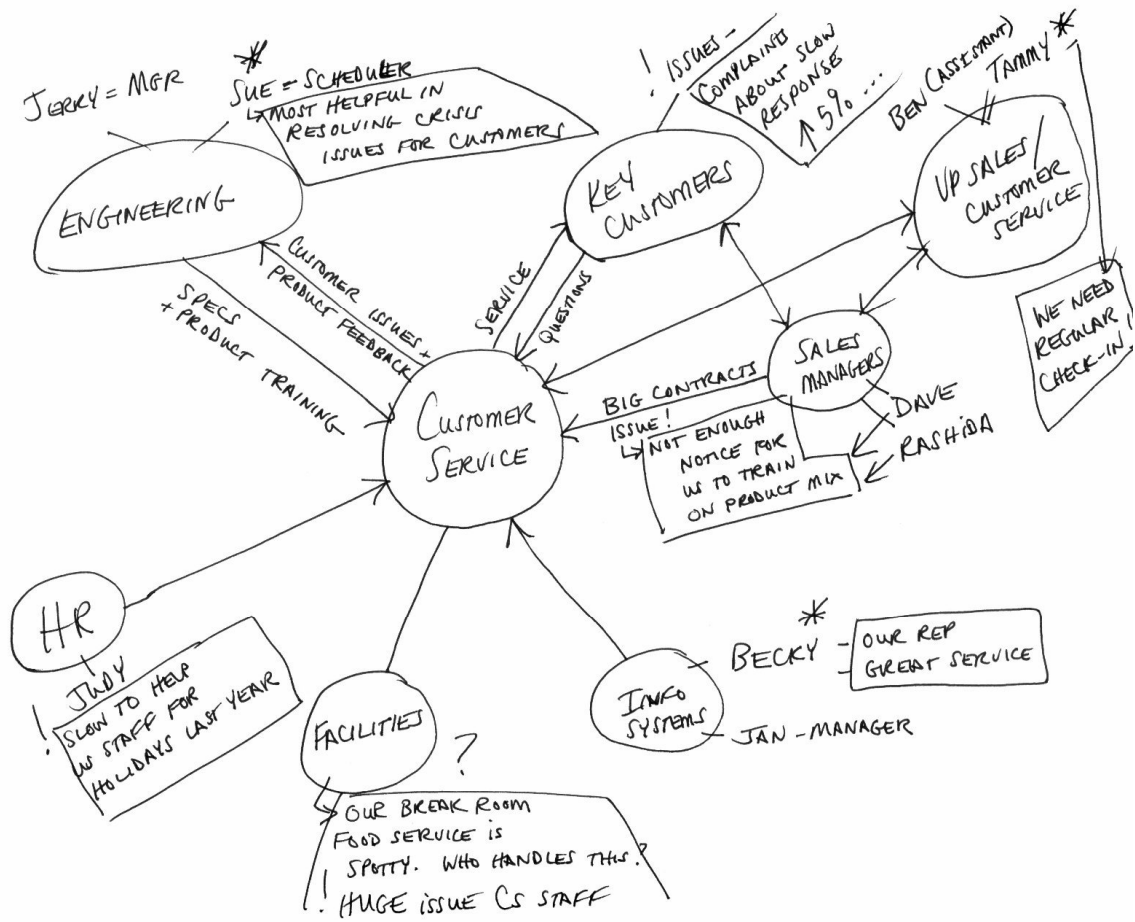 JERRY = MGR
* SUE = SCHEDULER
↳ MOST HELPFUL IN
RESOLVING CRISIS
ISSUES FOR CUSTOMERS
ENGINEERING
! ISSUES -
COMPLAINTS
ABOUT SLOW
RESPONSE
↑ 5% ...
KEY
CUSTOMERS
BEN (ASSISTANT)
TAMMY *
VP SALES/
CUSTOMER
SERVICE
WE NEED
REGULAR
CHECK-IN!
CUSTOMER ISSUES +
PRODUCT FEEDBACK
SPECS
+ PRODUCT TRAINING
SERVICE
QUESTIONS
SALES
MANAGERS
DAVE
RASHIDA
BIG CONTRACTS
ISSUE!
↳ NOT ENOUGH
NOTICE FOR
US TO TRAIN
ON PRODUCT MIX
CUSTOMER
SERVICE
HR
JUDY
! SLOW TO HELP
US STAFF FOR
HOLIDAYS LAST YEAR
FACILITIES
?
OUR BREAK ROOM
FOOD SERVICE IS
SPOTTY. WHO HANDLES THIS?
! HUGE ISSUE CS STAFF
INFO
SYSTEMS
BECKY *
OUR REP
GREAT SERVICE
JAN - MANAGER